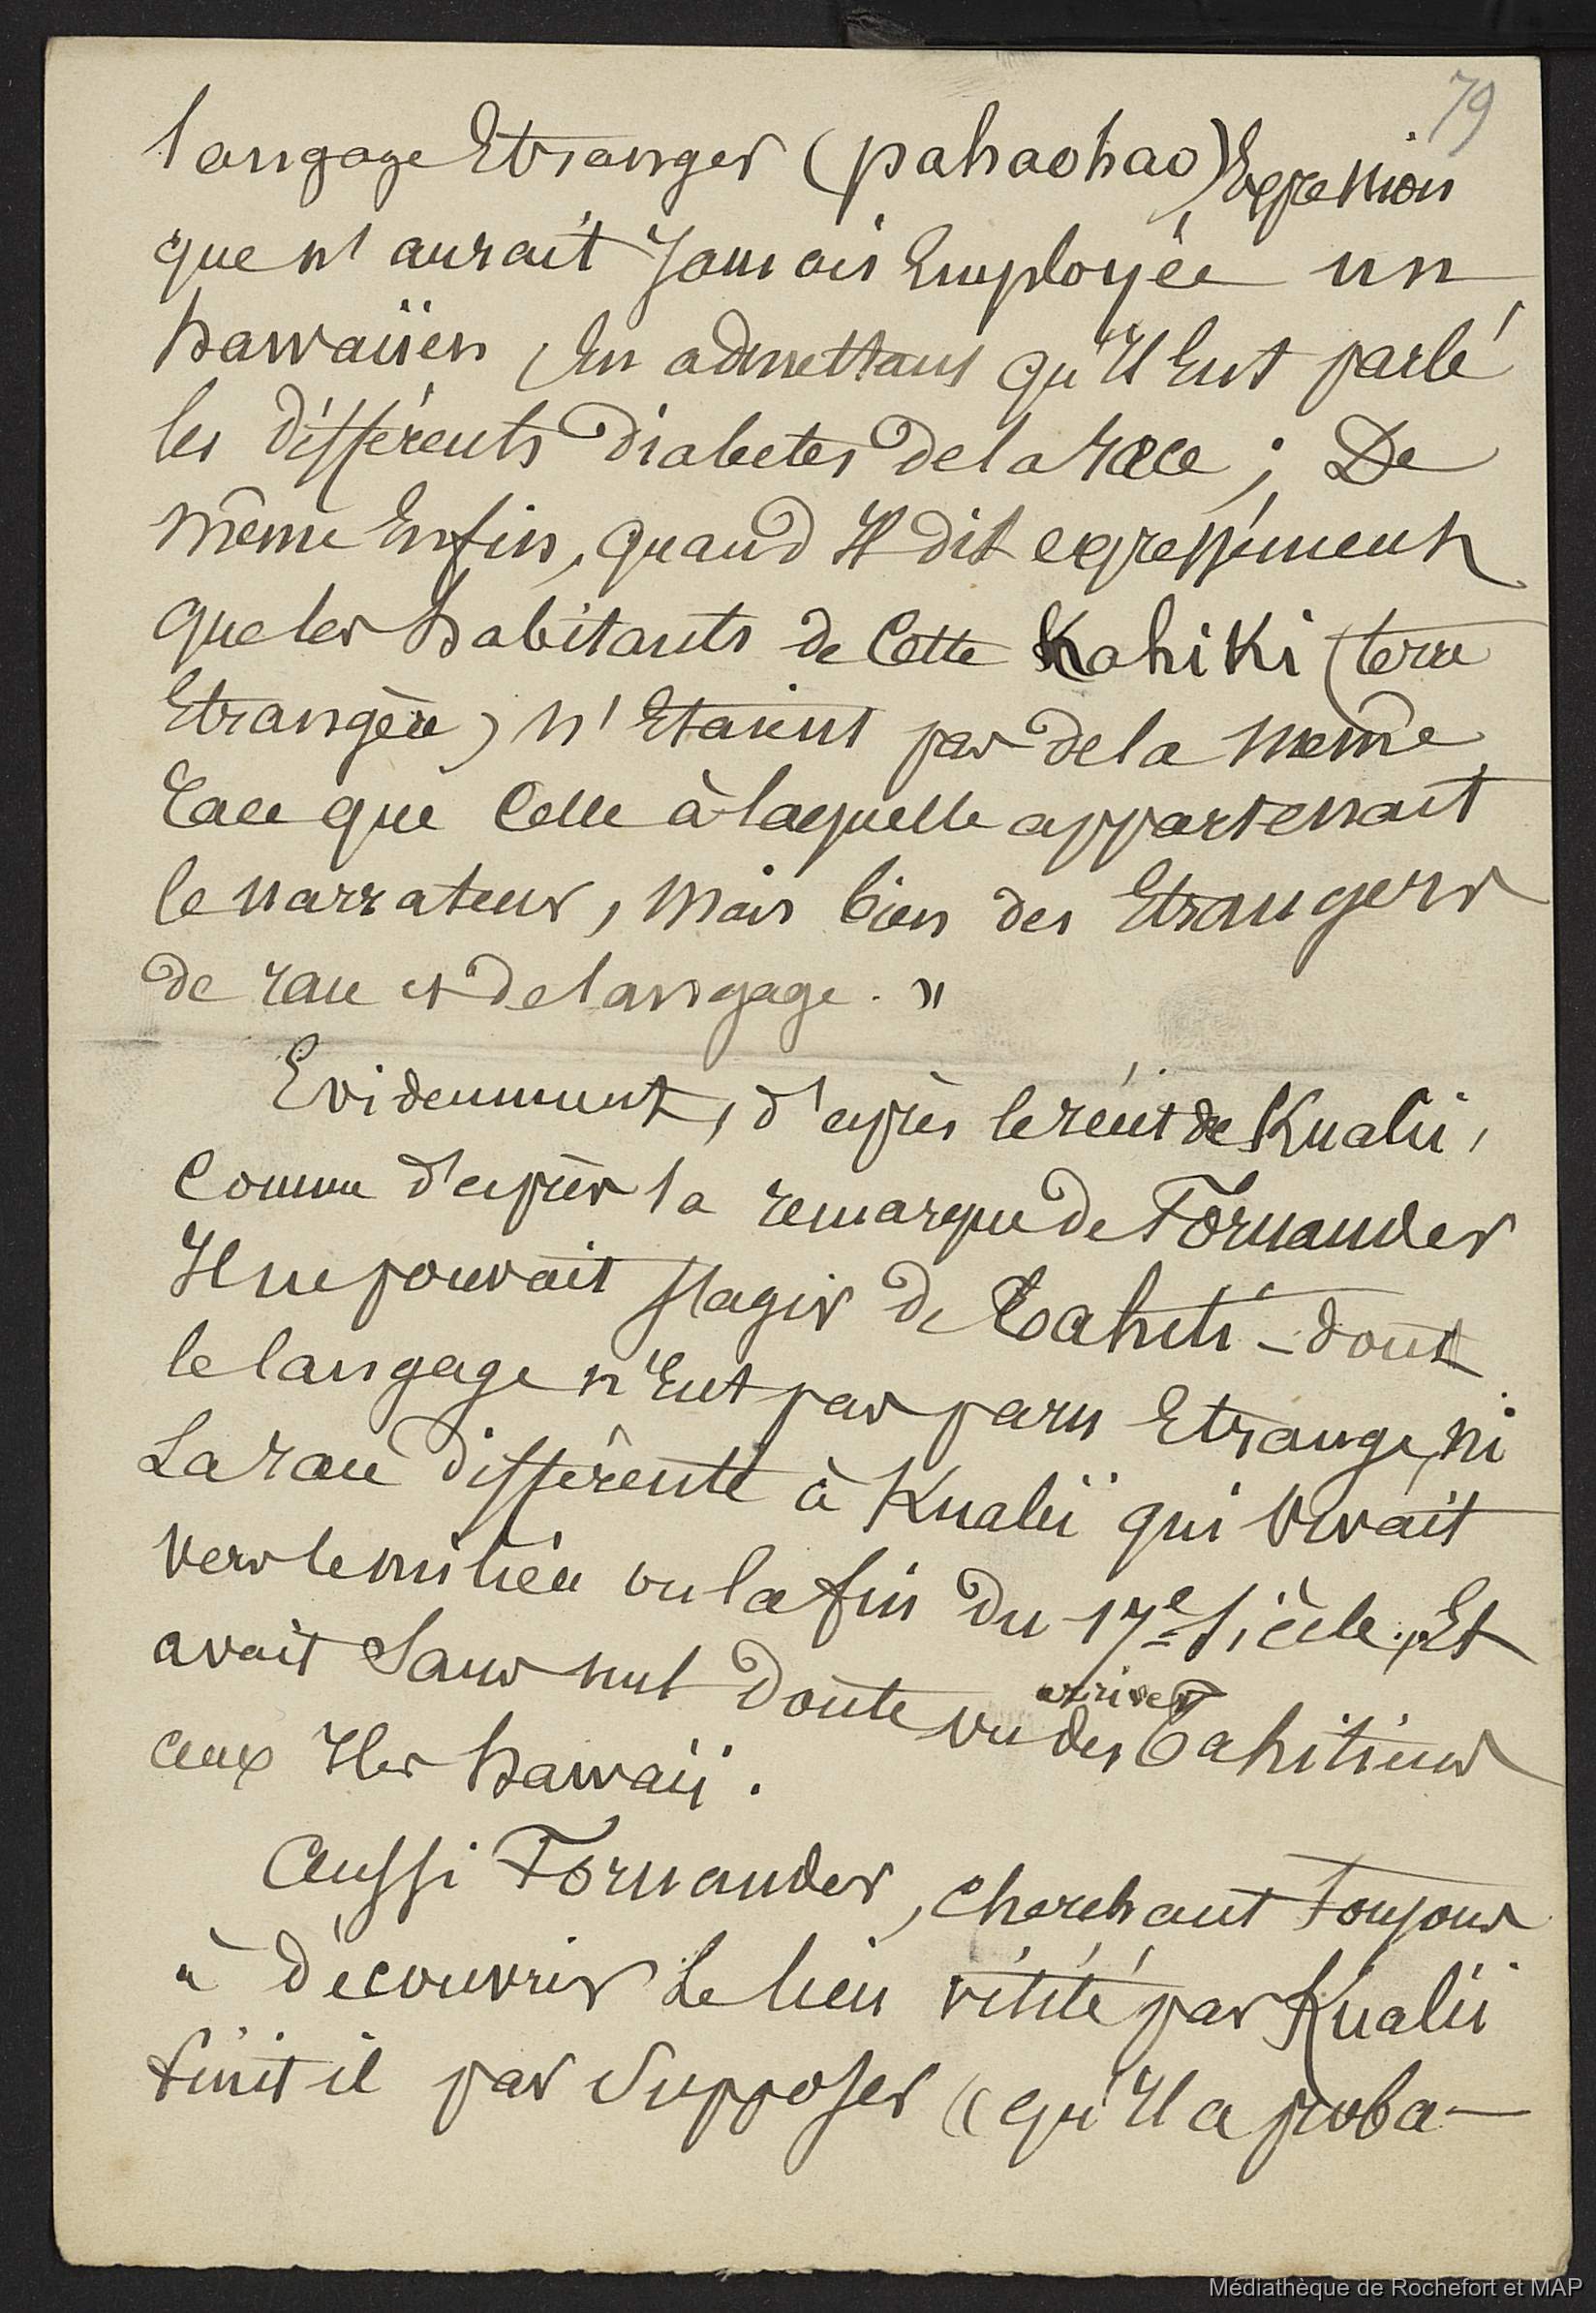 79
langage Etranger (pahaohao) Expression
que n'aurait Jamais Employée un
hawaiien, En admettant qu'Il Eut parlé
les différents dialectes de la race ; De
même Enfin, quand Il dit expressément
que les habitants de Cette Kahiki (terre
Etrangère) n'Etaient pas de la même
race que Celle à laquelle appartenait
le narrateur, mais bien des Etrangers
de race et de langage. »
Evidemment, d'après le récit de Kualii,
Comme d'après la remarque de Fornander
Il ne pouvait s'agir de Tahiti - dont
le langage n'Eut pas paru Etrange, ni
La race différente à Kualii qui vivait
vers le milieu ou la fin du 17e Siècle, Et
avait Sans nul doute vu arriver des Tahitiens
aux Iles hawaii.
Aussi Fornander, cherchant toujours
à découvrir Le lieu visité par Kualii
finit il par Supposer « qu'Il a proba-
Médiathèque de Rochefort et MAP